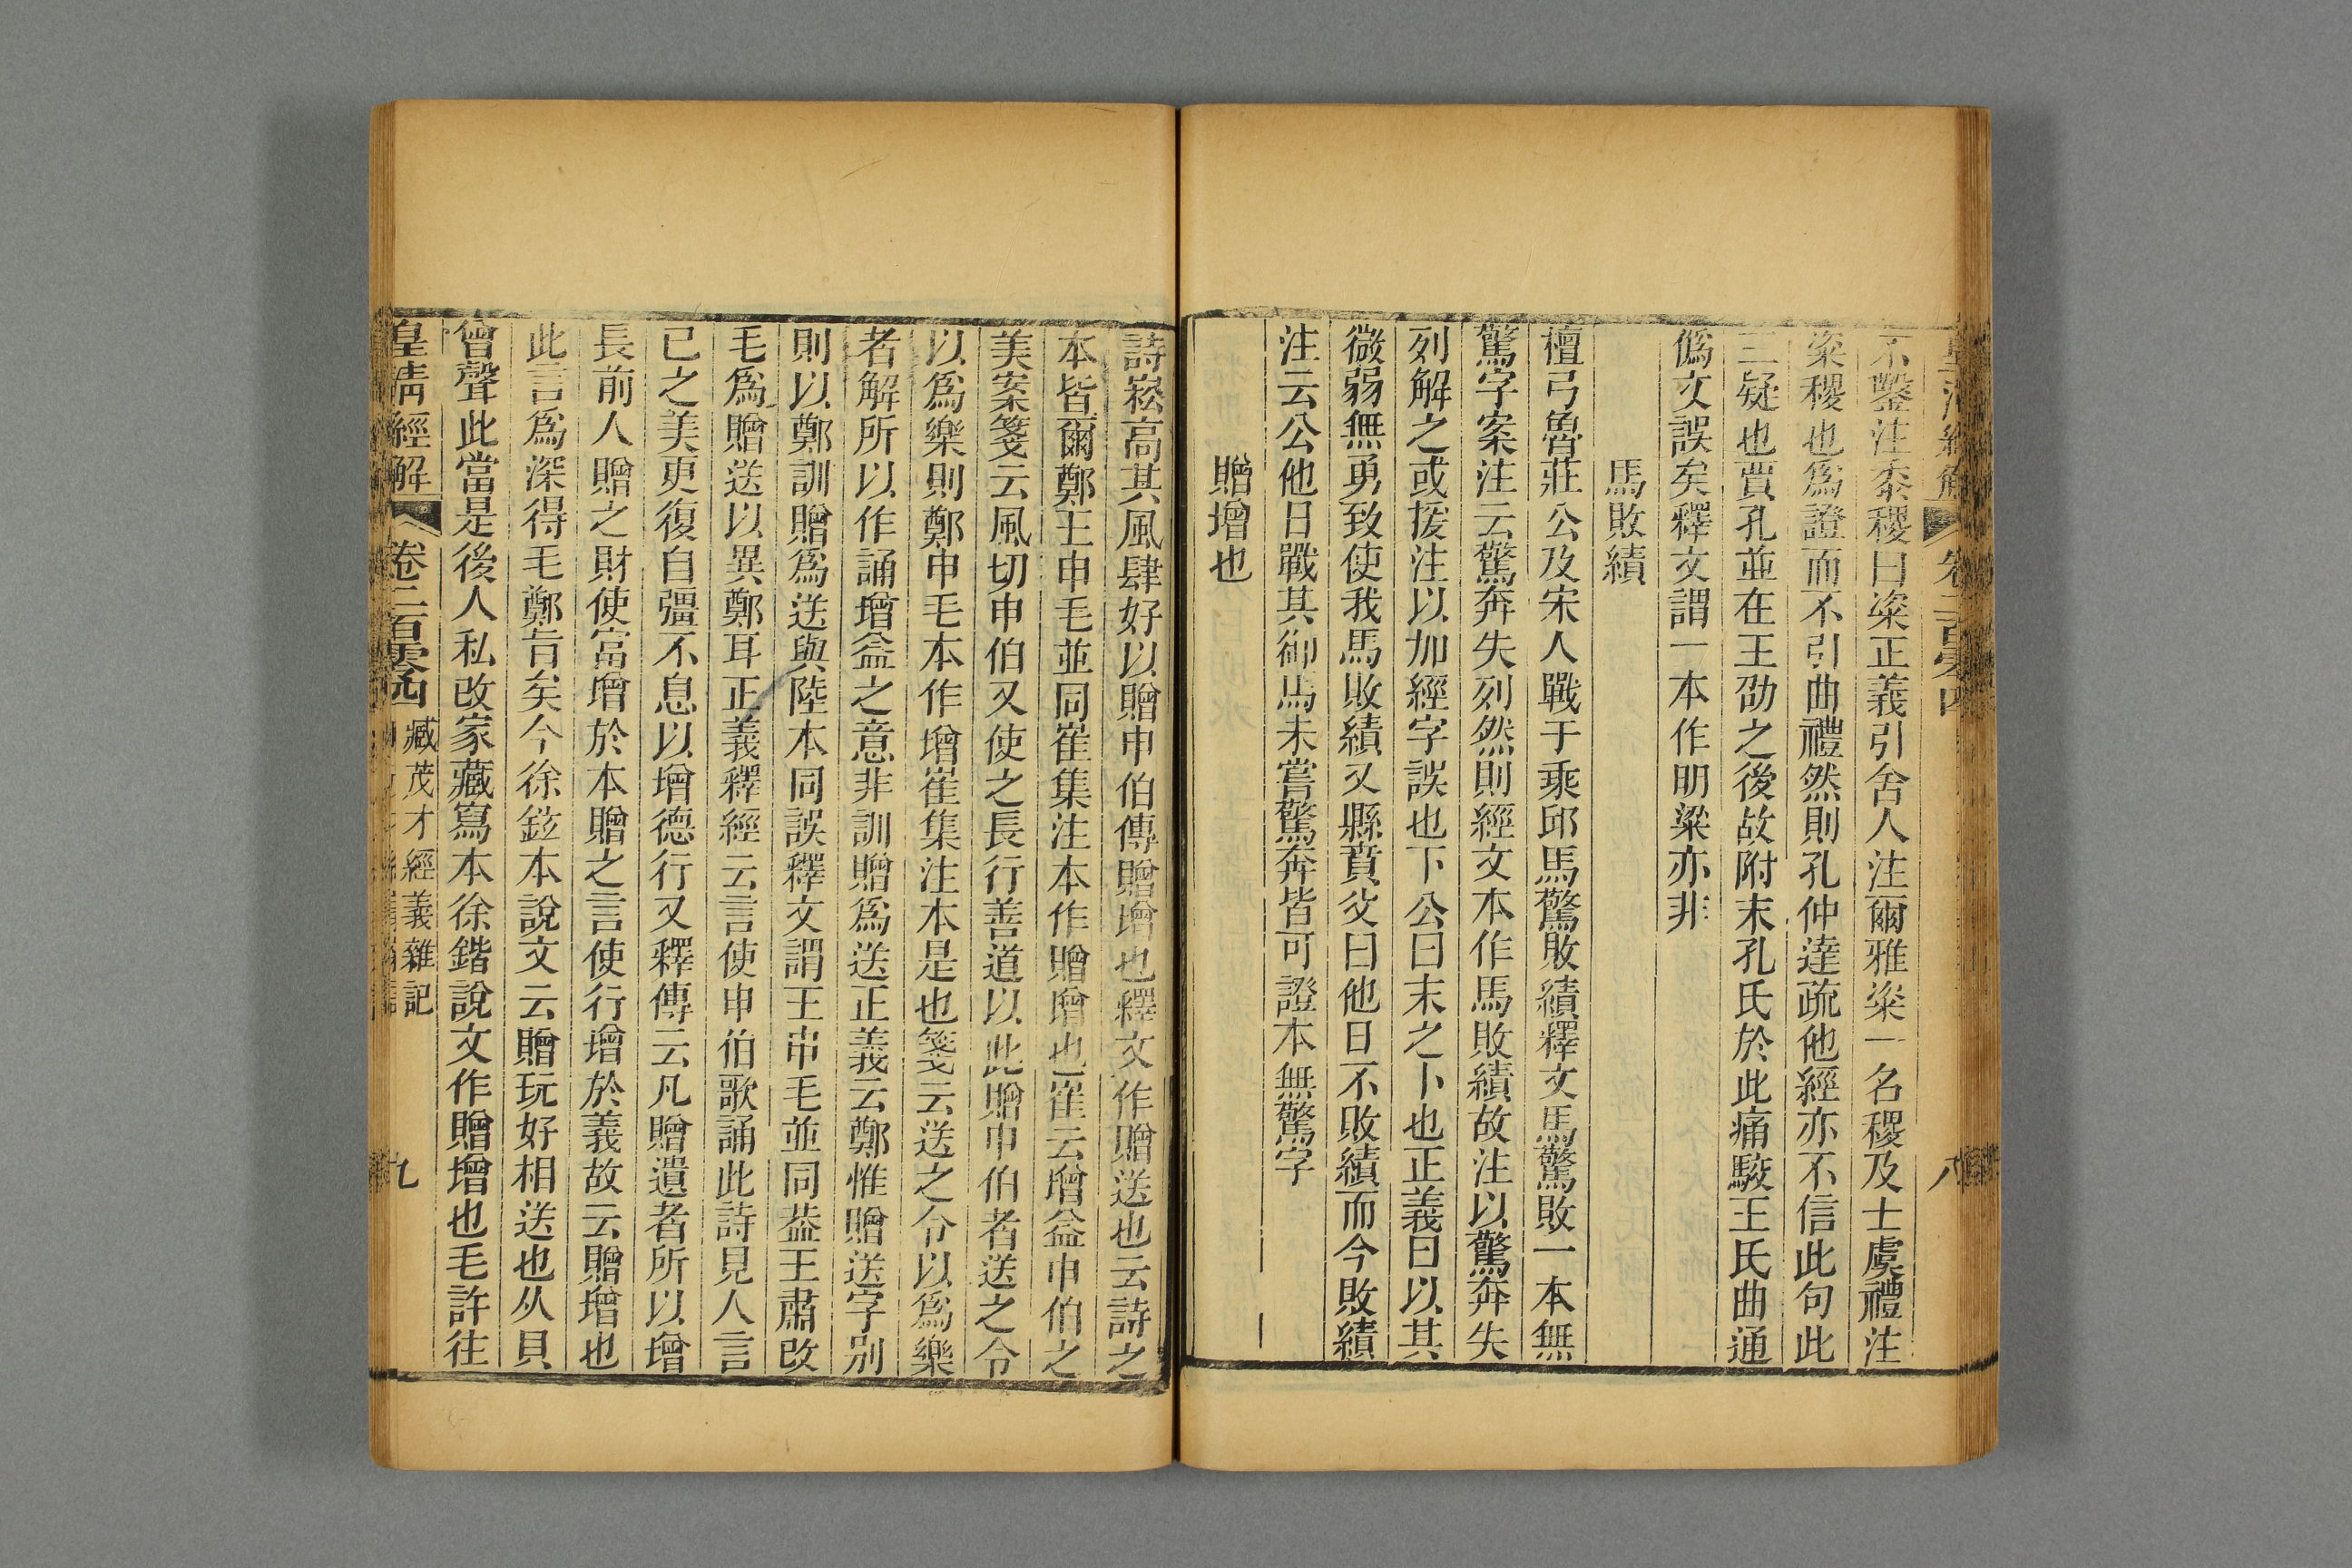 不鑿注黍稷曰粢正義引舍人注爾雅粢一名稷及士虞禮注
粢稷也爲證而不引曲禮然則孔仲達疏他經亦不信此句此
三疑也賈孔並在王劭之後故附末孔氏於此痛駁王氏曲通
僞文誤矣釋文謂一本作明粱亦非
馬敗績
檀弓魯莊公及宋人戰于乘邱馬驚敗績釋文馬驚敗一本無
驚字案注云驚奔失列然則經文本作馬敗績故注以驚奔失
列解之或援注以加經字誤也下公曰末之卜也正義曰以其
微弱無勇致使我馬敗績又縣賁父曰他日不敗績而今敗績
注云公他日戰其御馬未嘗驚奔皆可證本無驚字
贈增也
八
詩崧高其風肆好以贈申伯傳贈增也釋文作贈送也云詩之
本皆爾鄭王申毛並同崔集注本作贈增也崔云增益申伯之
美案箋云風切申伯又使之長行善道以此贈申伯者送之令
以爲樂則鄭申毛本作增崔集注本是也箋云送之令以爲樂
者解所以作誦增益之意非訓贈爲送正義云鄭惟贈送字别
則以鄭訓贈爲送與陸本同誤釋文謂王申毛並同葢王肅改
毛爲贈送以異鄭耳正義釋經云言使申伯歌誦此詩見人言
已之美更復自彊不息以增德行又釋傳云凡贈遺者所以增
長前人贈之財使富增於本贈之言使行增於義故云贈增也
此言爲深得毛鄭旨矣今徐鉉本說文云贈玩好相送也从貝
曾聲此當是後人私改家藏寫本徐鍇說文作贈增也毛許往
皇清經解 卷二百零四 臧茂才經義雜記
九